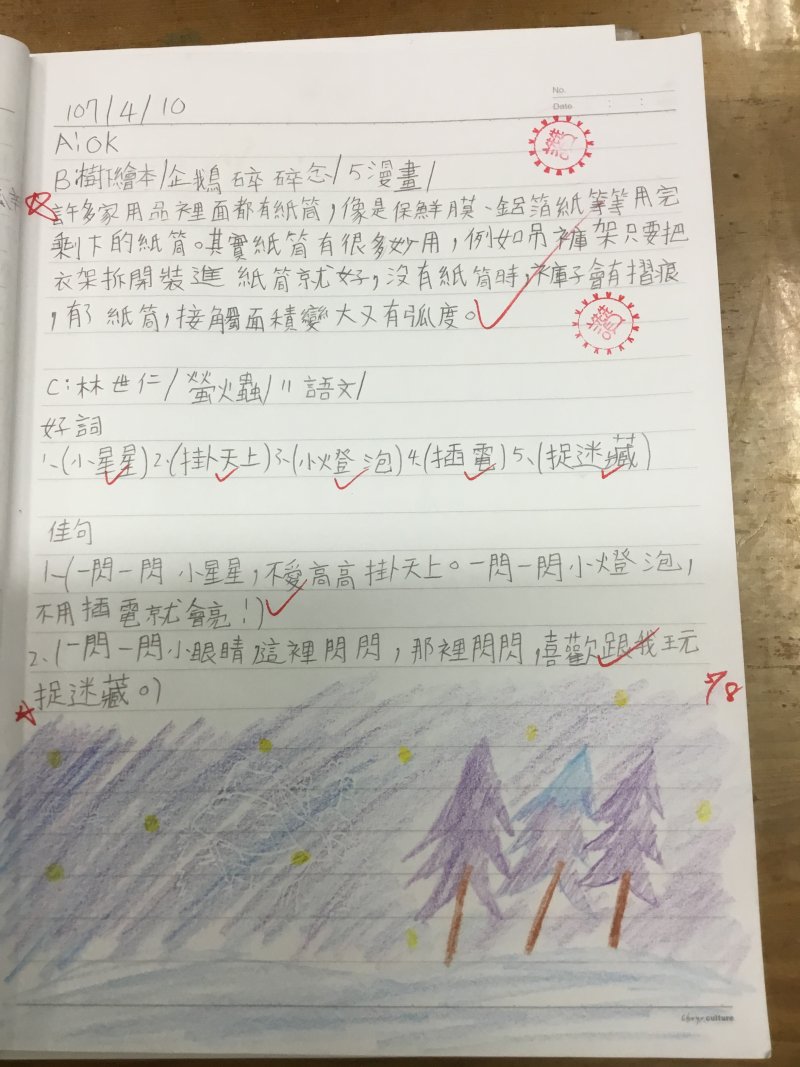 No.
107/4/10
Date : :
A:OK
B:樹繪本/企鵝碎碎念/5漫畫/
許多家用品裡面都有紙筒,像是保鮮膜、鋁箔紙等等用完
剩下的紙筒。其實紙筒有很多妙用,例如吊褲架只要把
衣架拆開裝進紙筒就好,沒有紙筒時,褲子會有摺痕
,有了紙筒,接觸面積變大又有弧度。
C:林世仁/螢火蟲/11語文/
好詞
1、(小星星)2、(掛天上)3、(小燈泡)4、(插電)5、(捉迷藏)
佳句
1、(一閃一閃小星星,不愛高高掛天上。一閃一閃小燈泡,
不用插電就會亮!)
2、(一閃一閃小眼睛,這裡閃閃,那裡閃閃,喜歡跟我玩
捉迷藏。)
78
culture